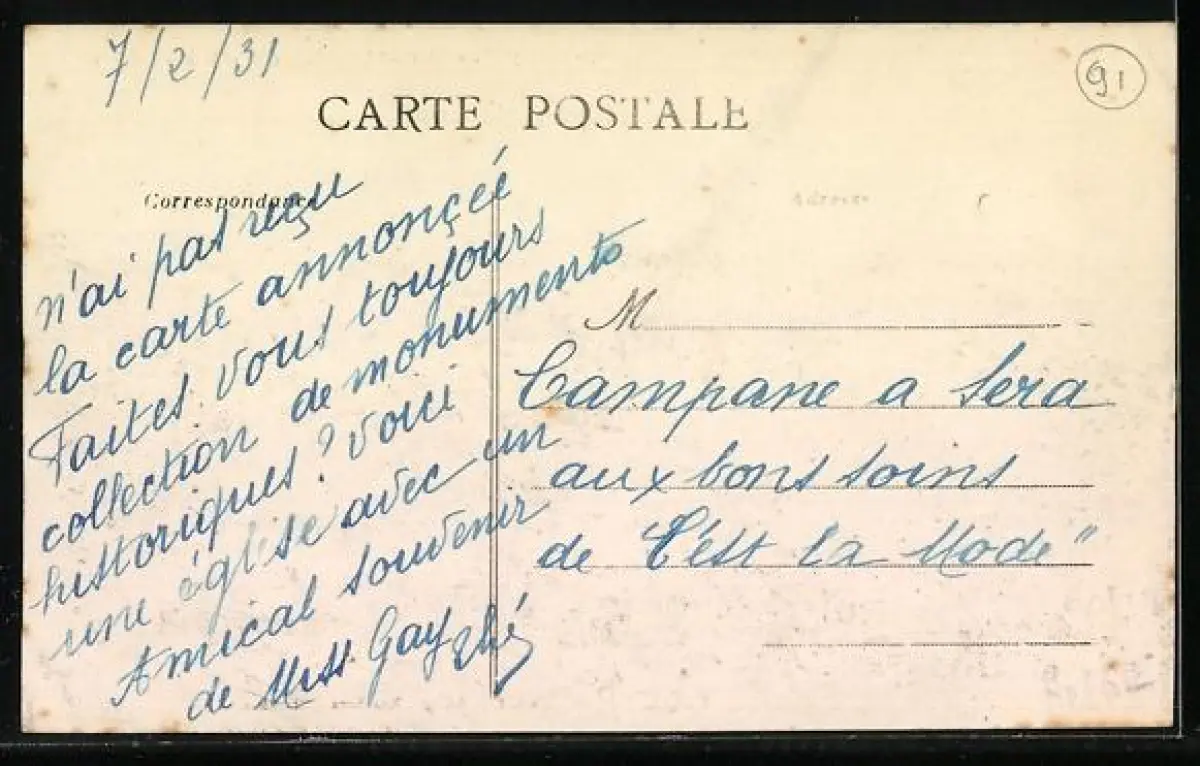 7/2/31
91
CARTE POSTALE
Correspondance
Adresse
n'ai pas reçu
la carte annonçée
Faites. vous toujours
collection de monuments
historiques? voici
une église avec un
Amical souvenir
de Miss Gay
M
Campane a Sera
aux bons soins
de "C'est la Mode"